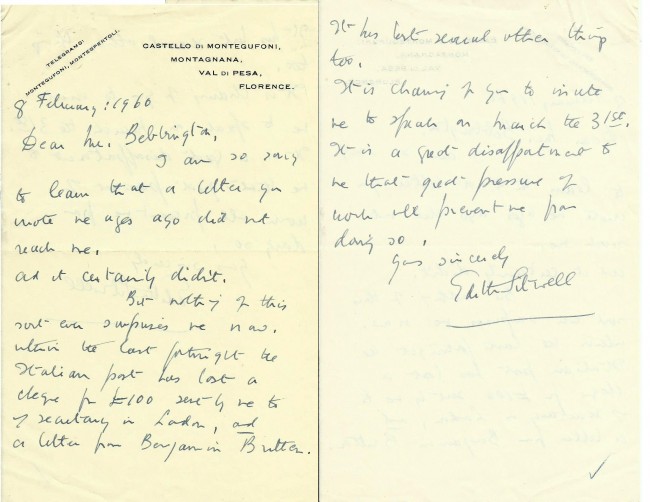 TELEGRAMS:
MONTEGUFONI, MONTESPERTOLI.
CASTELLO DI MONTEGUFONI,
MONTAGNANA,
VAL DI PESA,
FLORENCE.
8 February: 1960
Dear Mr. Bebbington,
I am so sorry
to learn that a letter you
wrote me ages ago did not
reach me.
and it certainly didn't.
But nothing of this
sort ever surprises me now.
within the last fortnight the
Italian post has lost a
cheque for £100 sent by me to
my secretary in London, and
a letter from Benjamin Britten.
It has lost several other things
too.
It is charming of you to invite
me to speak on March the 31st.
It is a great disappointment to
me that great pressure of
work will prevent me from
doing so.
Yours sincerely
Edith Sitwell